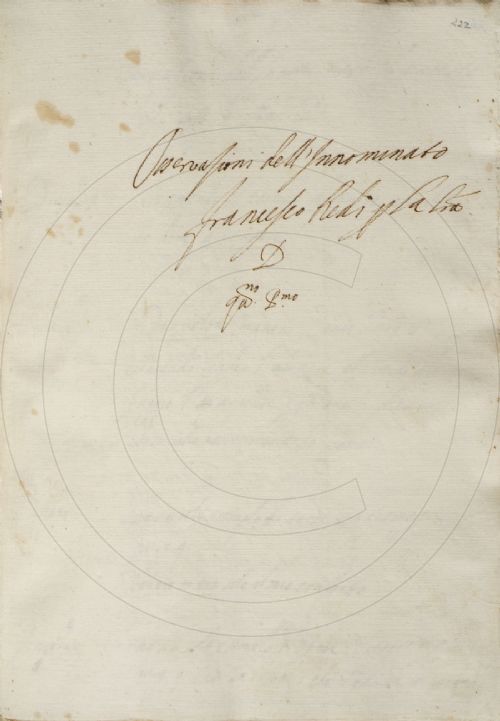 222
Osservazioni dell'Innominato
Francesco Redi p la lra
D
qno Pmo